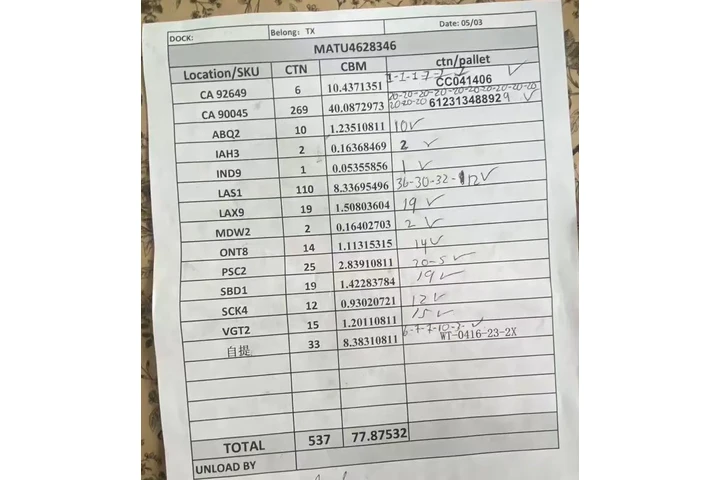 DOCK: Belong: TX Date: 05/03
MATU4628346
Location/SKU CTN CBM ctn/pallet
CA 92649 6 10.4371351 CC041406 ✓
CA 90045 269 40.0872973 20-20-20 61231348892 9 ✓
ABQ2 10 1.23510811 10 ✓
IAH3 2 0.16368469 2 ✓
IND9 1 0.05355856 1 ✓
LAS1 110 8.33695496 36-30-32- 12 ✓
LAX9 19 1.50803604 19 ✓
MDW2 2 0.16402703 2 ✓
ONT8 14 1.11315315 14 ✓
PSC2 25 2.83910811 20-5 ✓
SBD1 19 1.42283784 19 ✓
SCK4 12 0.93020721 12 ✓
VGT2 15 1.20110811 15 ✓
自提 33 8.38310811 6-7-7-10-3 ✓ WT-0416-23-2X
TOTAL 537 77.87532
UNLOAD BY